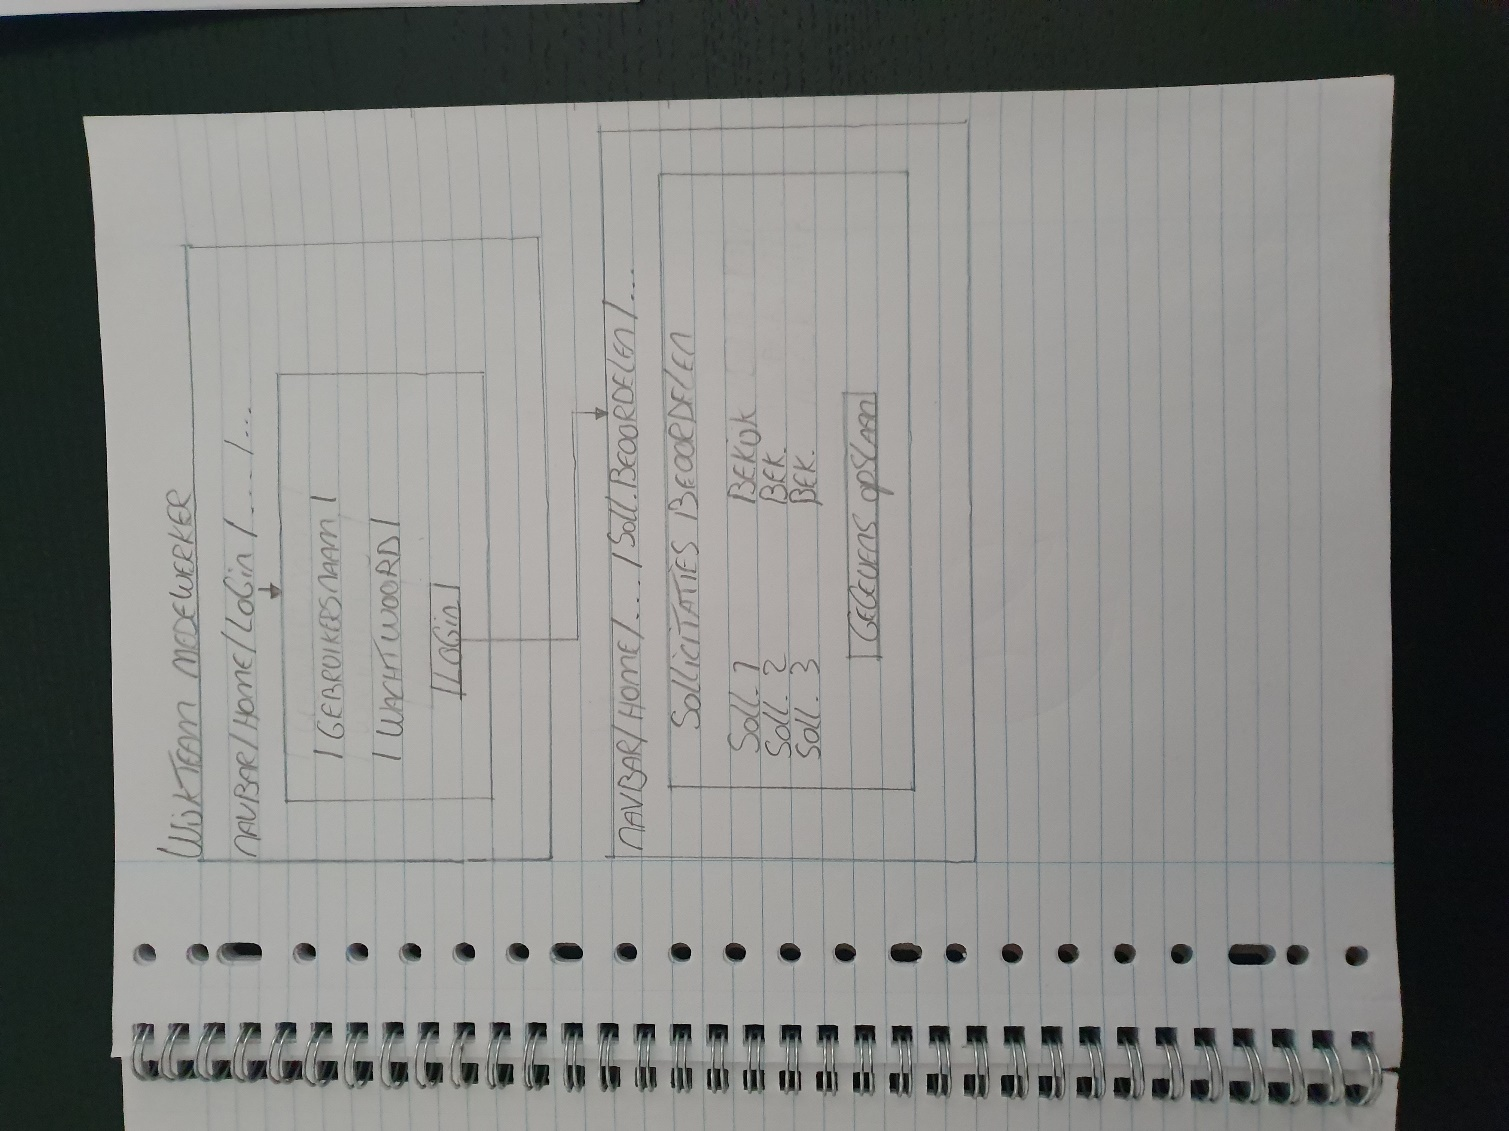 WijkTEAM MEDEWERKER
NAVBAR/HOME/LOGin/..../...
|GEBRUIKERSNAAM|
|WACHTWOORD|
|LOGin|
NAVBAR/HOME/..../Soll.BEOORDELEN/...
SolliciTATIES BEOORDELEN
Soll. 1 BEKIJK
Soll. 2 BEK.
Soll. 3 BEK.
GEGEVENS OPSLAAN